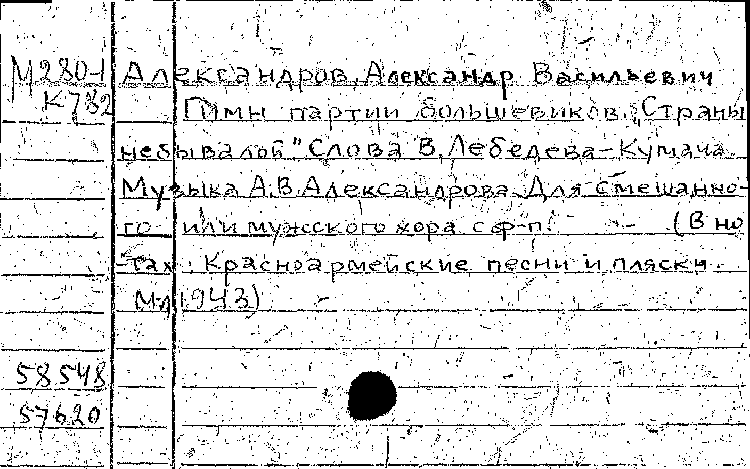 М280-1 Александров, Александр Васильевич
К782 Гимн партии большевиков. "Страны
небывалой" Слова В. Лебедева-Кумача.
Музыка А.В. Александрова. Для смешанно-
го или мужского хора с ф-п. (В но
тах: Красноармейские песни и пляски.
М-Л 1943)
58548
57620